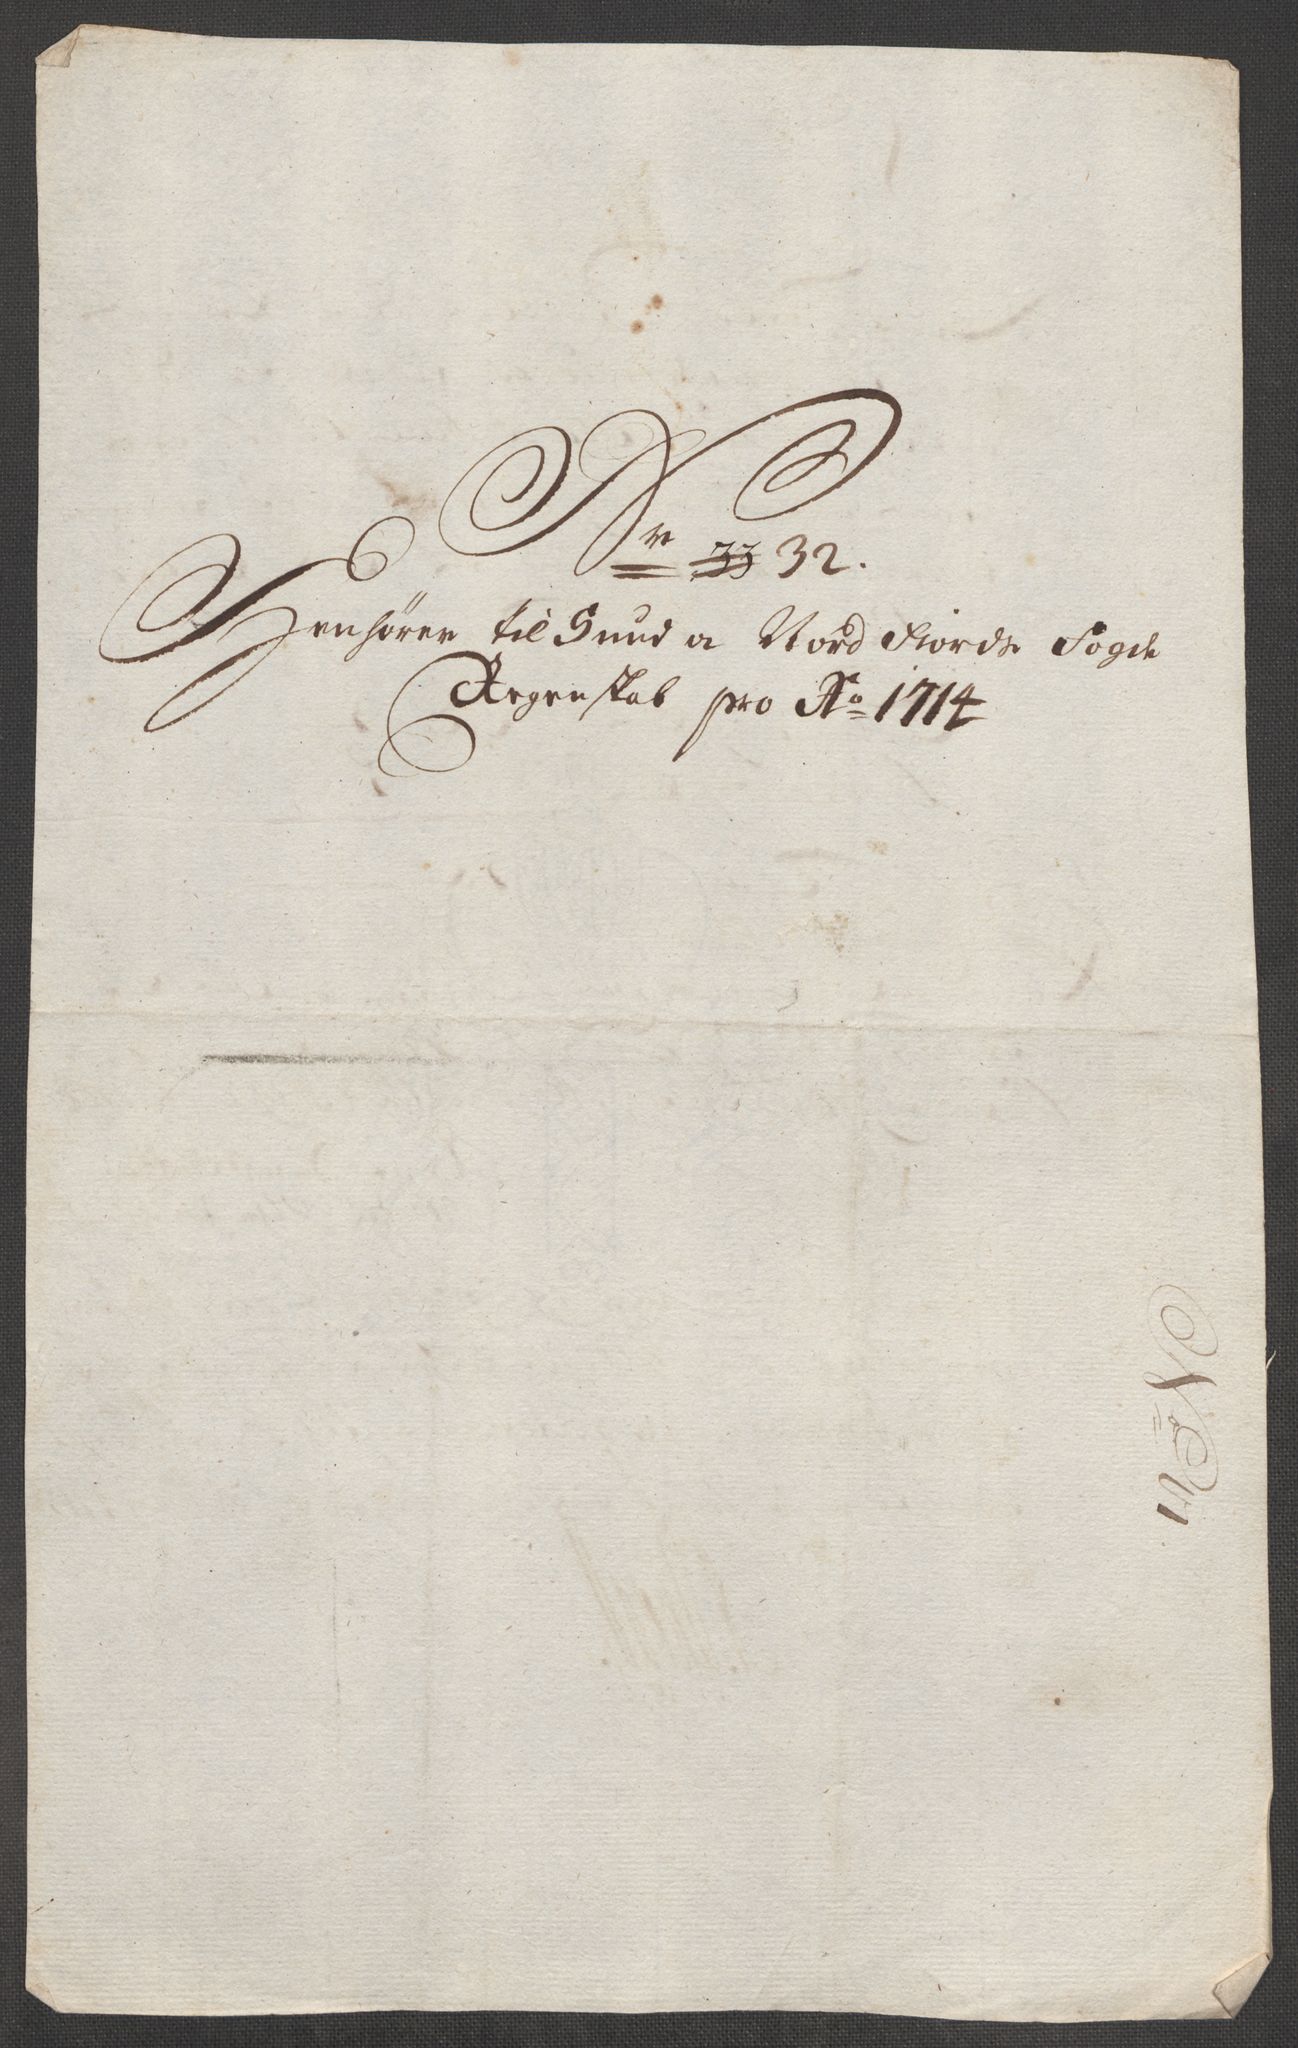 Nr 33 32.
Henhører til Sund og Nord Fiords Fogde
Regenskab pro Ao 1714
No VI